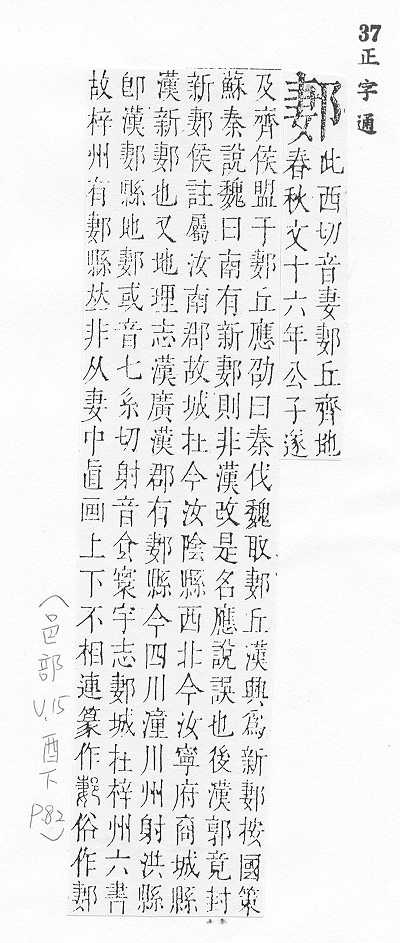 37正字通
郪
此西切音妻郪丘齊地
春秋文十六年公子遂
及齊侯盟于郪丘應劭曰秦伐魏取郪丘漢興為新郪按國策
蘇秦說魏曰南有新郪則非漢改是名應說誤也後漢郭竟封
新郪侯註屬汝南郡故城在今汝陰縣西北今汝寧府商城縣
漢新郪也又地理志漢廣漢郡有郪縣今四川潼川州射洪縣
卽漢郪縣地郪或音七糸切射音食寰宇志郪城在梓州六書
故梓州有郪縣𠀤非从妻中直画上下不相連篆作郪俗作郪
(邑部
V.15
酉下
P.82)